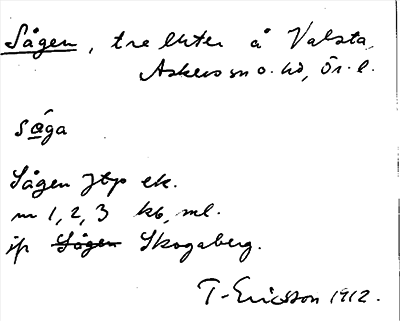 Sågen, tre lhter å Valsta,
Askers sn o. hd, Ör. l.
såga
Sågen Jtp ek.
nr 1, 2, 3 kb, ml.
ip Sågen Skogaberg.
T. Ericsson 1912.